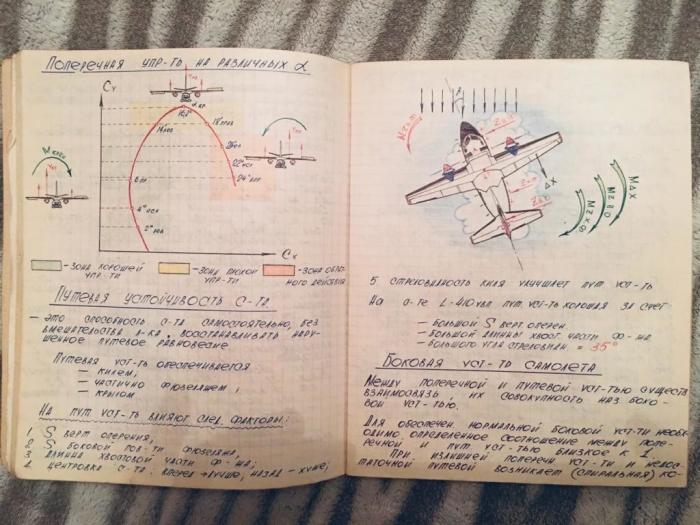 Поперечная упр-ть на различных α
Cy
α кр
Cx
- зона хорошей упр-ти
- зона плохой упр-ти
- зона обратного действия
Путевая устойчивость с-та
- это способность с-та самостоятельно, без
вмешательства л-ка, восстанавливать нару-
шенное путевое равновесие.
Путевая уст-ть обеспечивается
- килем,
- частично фюзеляжем,
- крылом
На пут. уст-ть влияют след. факторы:
1 S верт оперения,
2 S боковой пов-ти фюзеляжа,
3 длина хвостовой части ф-жа;
4 центровка с-та. вперед → лучше, назад - хуже;
ΔX
MΔX
5 стреловидность киля улучшает пут уст-ть
На с-те L-410увп пут. уст-ть хорошая за счет
- большой S верт оперен.
- большой длины хвост. части ф-жа
- большого угла стреловид. = 35°
Боковая уст-ть самолета
Между поперечной и путевой уст-тью существ
взаимосвязь, их совокупность наз боко-
вой уст-тью.
Для обеспечен. нормальной боковой уст-ти необх-
одимо определенное соотношение между попе-
речной и пут уст-тью близкое к 1.
При излишней поперечн уст-ти и недос-
таточной путевой возникает (спиральная) ко-